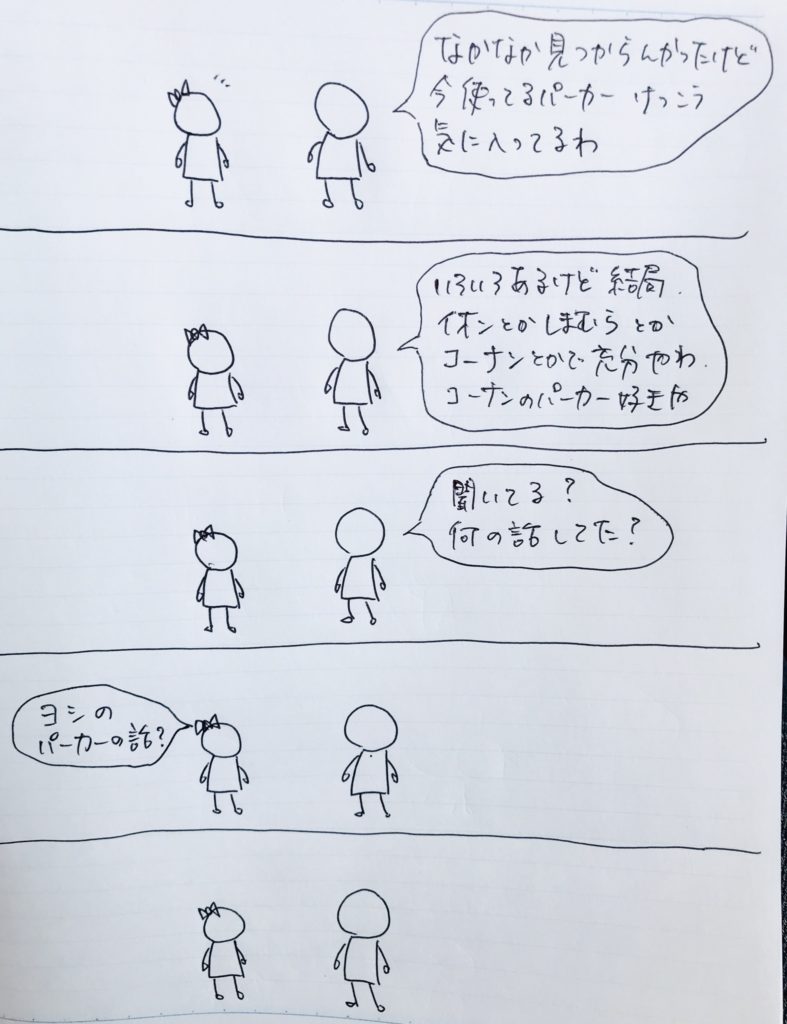 なかなか見つからんかったけど
今使ってるパーカー けっこう
気に入ってるわ
いろいろあるけど 結局
イオンとかしまむらとか
コーナンとかで充分やわ
コーナンのパーカー好きや
聞いてる？
何の話してた？
ヨシの
パーカーの話？